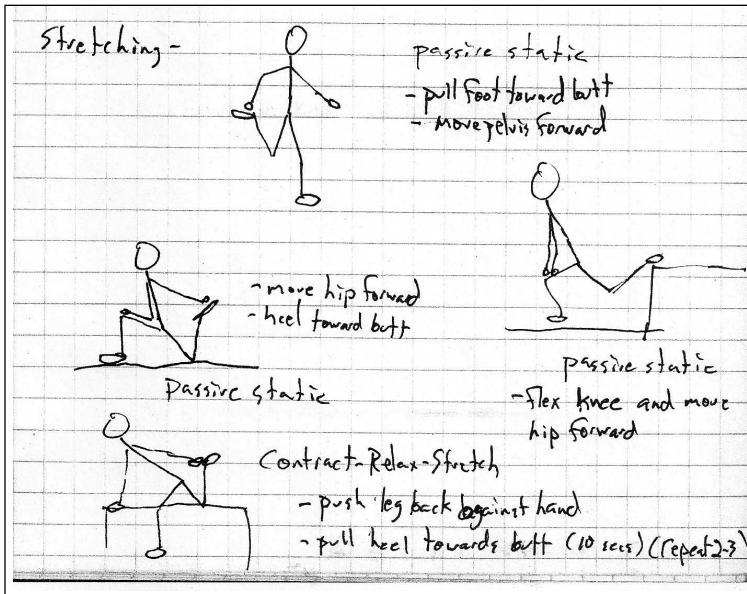 Stretching -
passive static
- pull foot toward butt
- move pelvis forward
- move hip forward
- heel toward butt
passive static
passive static
- flex knee and move
hip forward
Contract-Relax-Stretch
- push leg back against hand
- pull heel towards butt (10 secs) (repeat 2-3)